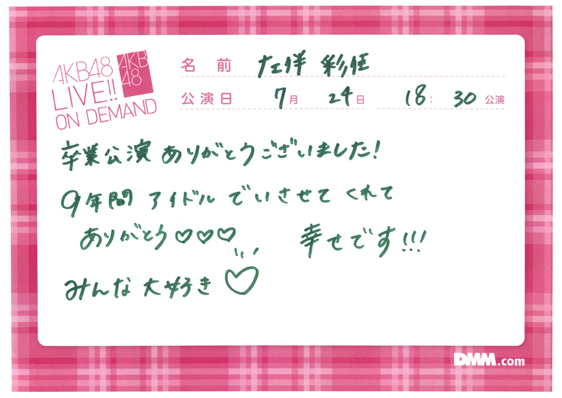 AKB48
LIVE!!
ON DEMAND
AKB
48
名前 左伴 彩佳
公演日 7月 24日 18:30公演
卒業公演 ありがとうございました!
9年間 アイドル でいさせて くれて
ありがとう♡♡♡ 幸せです!!!
みんな 大好き♡
DMM.com